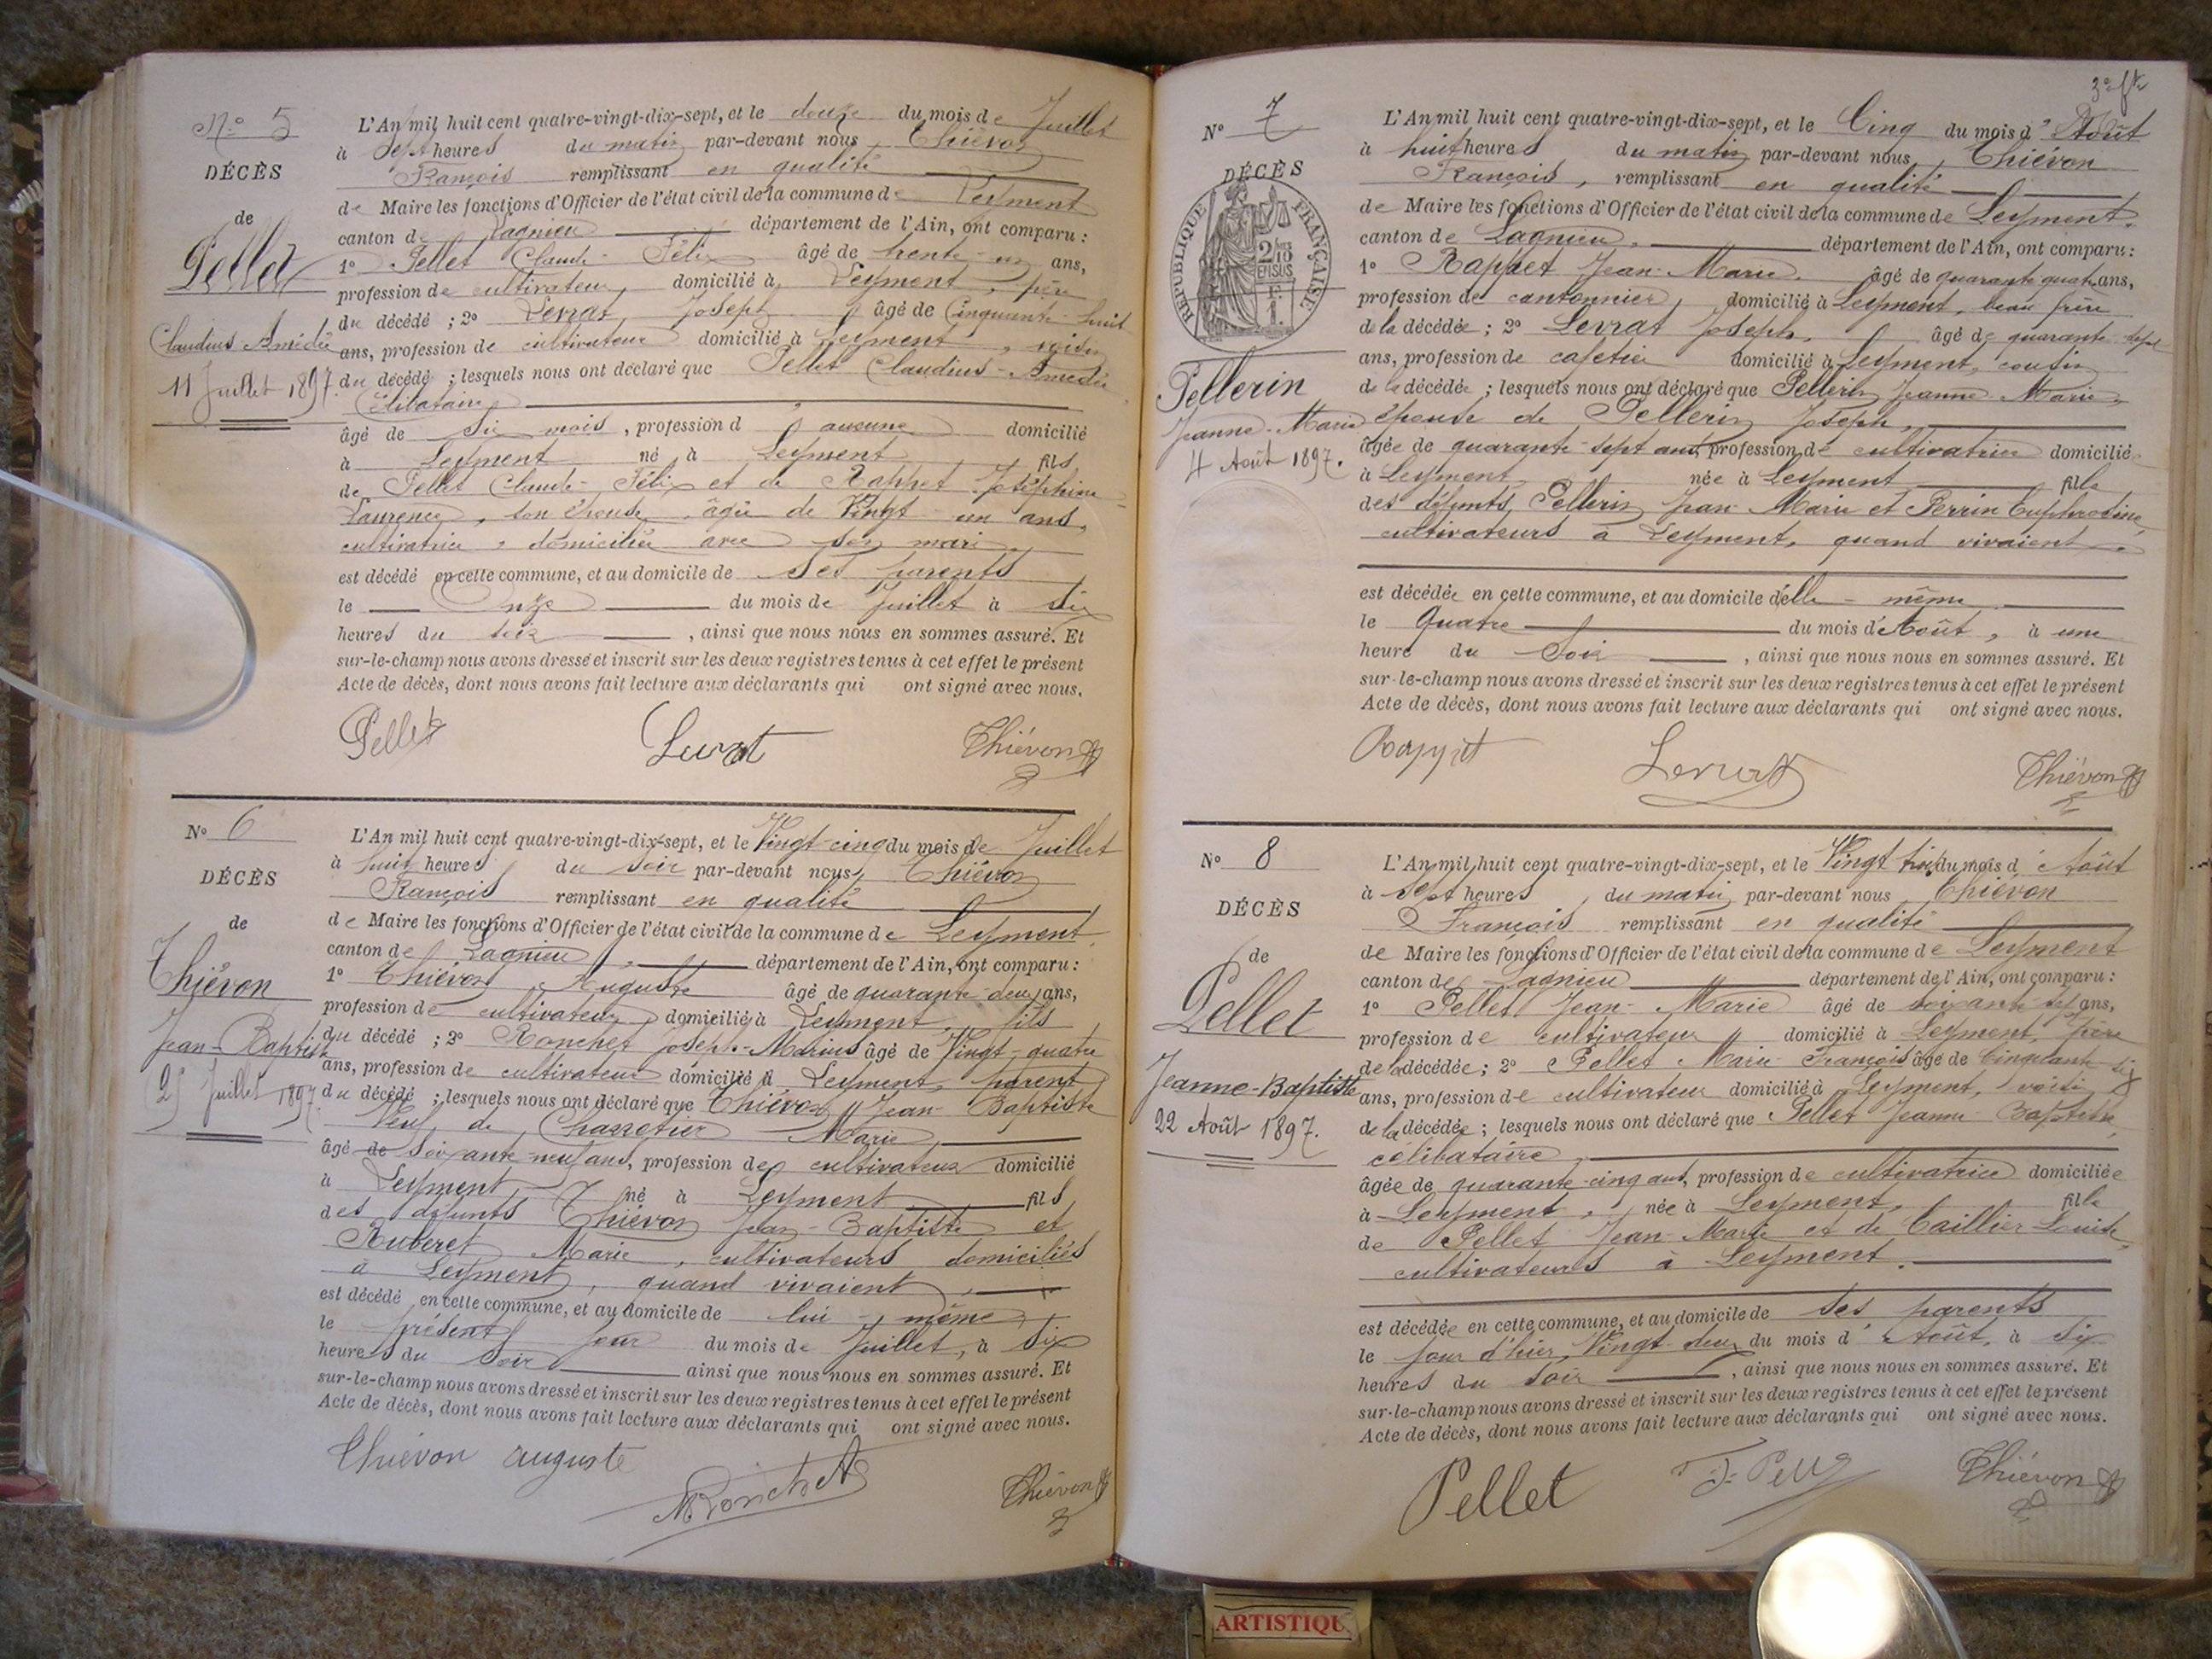 N° 5
DÉCÈS
de
Pellet
Claudius Amédée
11 Juillet 1897.
L'An mil huit cent quatre-vingt-dix-sept, et le douze du mois de Juillet
à Sept heures du matin par-devant nous, Thiévon
François remplissant en qualité
de Maire les fonctions d'Officier de l'état civil de la commune de Leyment
canton de Lagnieu département de l'Ain, ont comparu :
1° Pellet Claude-Félix âgé de trente-un ans,
profession de cultivateur, domicilié à Leyment, père
du décédé ; 2° Levrat, Joseph âgé de Cinquante-huit
ans, profession de cultivateur domicilié à Leyment, voisin
du décédé ; lesquels nous ont déclaré que Pellet Claudius-Amédée
Célibataire
âgé de six mois, profession d'aucune domicilié
à Leyment né à Leyment fils
de Pellet Claude-Félix et de Rappet Joséphine-
Laurence, son épouse, âgée de Vingt-un ans,
cultivatrice, domiciliée avec son mari,
est décédé en cette commune, et au domicile de ses parents
le Onze du mois de Juillet à six
heures du soir, ainsi que nous nous en sommes assuré. Et
sur-le-champ nous avons dressé et inscrit sur les deux registres tenus à cet effet le présent
Acte de décès, dont nous avons fait lecture aux déclarants qui ont signé avec nous.
Pellet Levrat Thiévon
N° 6
DÉCÈS
de
Thiévon
Jean-Baptiste
25 Juillet 1897.
L'An mil huit cent quatre-vingt-dix-sept, et le Vingt-cinq du mois de Juillet
à huit heures du soir par-devant nous, Thiévon
François remplissant en qualité
de Maire les fonctions d'Officier de l'état civil de la commune de Leyment
canton de Lagnieu, département de l'Ain, ont comparu :
1° Thiévon Auguste âgé de quarante-deux ans,
profession de cultivateur domicilié à Leyment, fils
du décédé ; 2° Ronchet Joseph-Marius âgé de Vingt-quatre
ans, profession de cultivateur domicilié à Leyment, parent
du décédé ; lesquels nous ont déclaré que Thiévon Jean-Baptiste
Veuf de Marie,
âgé de Soixante-neuf ans, profession de cultivateur domicilié
à Leyment, né à Leyment fils
des défunts Thiévon Jean-Baptiste et
Ruberet Marie, cultivateurs domiciliés
à Leyment, quand vivaient,
est décédé en cette commune, et au domicile de lui-même
le présent jour du mois de Juillet, à six
heures du Soir ainsi que nous nous en sommes assuré. Et
sur-le-champ nous avons dressé et inscrit sur les deux registres tenus à cet effet le présent
Acte de décès, dont nous avons fait lecture aux déclarants qui ont signé avec nous.
Thiévon auguste
MRonchet Thiévon
N° 7
DÉCÈS
RÉPUBLIQUE FRANÇAISE
2/10 EN SUS
Pellerin
Jeanne-Marie
4 Août 1897.
L'An mil huit cent quatre-vingt-dix-sept, et le Cinq du mois d'Août
à huit heures du matin par-devant nous, Thiévon
François, remplissant en qualité
de Maire les fonctions d'Officier de l'état civil de la commune de Leyment,
canton de Lagnieu, département de l'Ain, ont comparu :
1° Rappet Jean-Marie âgé de quarante quatre ans,
profession de cantonnier, domicilié à Leyment, beau frère
de la décédée ; 2° Levrat Joseph, âgé de quarante-sept
ans, profession de cafetier domicilié à Leyment, cousin
de la décédée ; lesquels nous ont déclaré que Pellerin Jeanne-Marie,
épouse de Pellerin Joseph,
âgée de quarante-sept ans, profession de cultivatrice domiciliée
à Leyment, née à Leyment fille
des défunts, Pellerin Jean-Marie et Perrin Euphrosine,
cultivateurs à Leyment, quand vivaient,
est décédée en cette commune, et au domicile d'elle-même
le Quatre du mois d'Août, à une
heure du Soir, ainsi que nous nous en sommes assuré. Et
sur-le-champ nous avons dressé et inscrit sur les deux registres tenus à cet effet le présent
Acte de décès, dont nous avons fait lecture aux déclarants qui ont signé avec nous.
Rappet Levrat Thiévon
N° 8
DÉCÈS
de
Pellet
Jeanne-Baptiste
22 Août 1897.
L'An mil huit cent quatre-vingt-dix-sept, et le Vingt trois du mois d'Août
à sept heures du matin par-devant nous Thiévon
François remplissant en qualité
de Maire les fonctions d'Officier de l'état civil de la commune de Leyment
canton de Lagnieu département de l'Ain, ont comparu :
1° Pellet Jean-Marie âgé de soixante-sept ans,
profession de cultivateur domicilié à Leyment, père
de la décédée ; 2° Pellet Marie-François âgé de Cinquante-six
ans, profession de cultivateur domicilié à Leyment, voisin
de la décédée ; lesquels nous ont déclaré que Pellet Jeanne-Baptiste,
célibataire,
âgée de quarante-cinq ans, profession de cultivatrice domiciliée
à Leyment, née à Leyment, fille
de Pellet Jean-Marie et de Caillier Louise,
cultivateurs à Leyment.
est décédée en cette commune, et au domicile de ses parents
le jour d'hier, Vingt-deux du mois d'Août, à six
heures du soir, ainsi que nous nous en sommes assuré. Et
sur-le-champ nous avons dressé et inscrit sur les deux registres tenus à cet effet le présent
Acte de décès, dont nous avons fait lecture aux déclarants qui ont signé avec nous.
Pellet Thiévon
ARTISTIQU